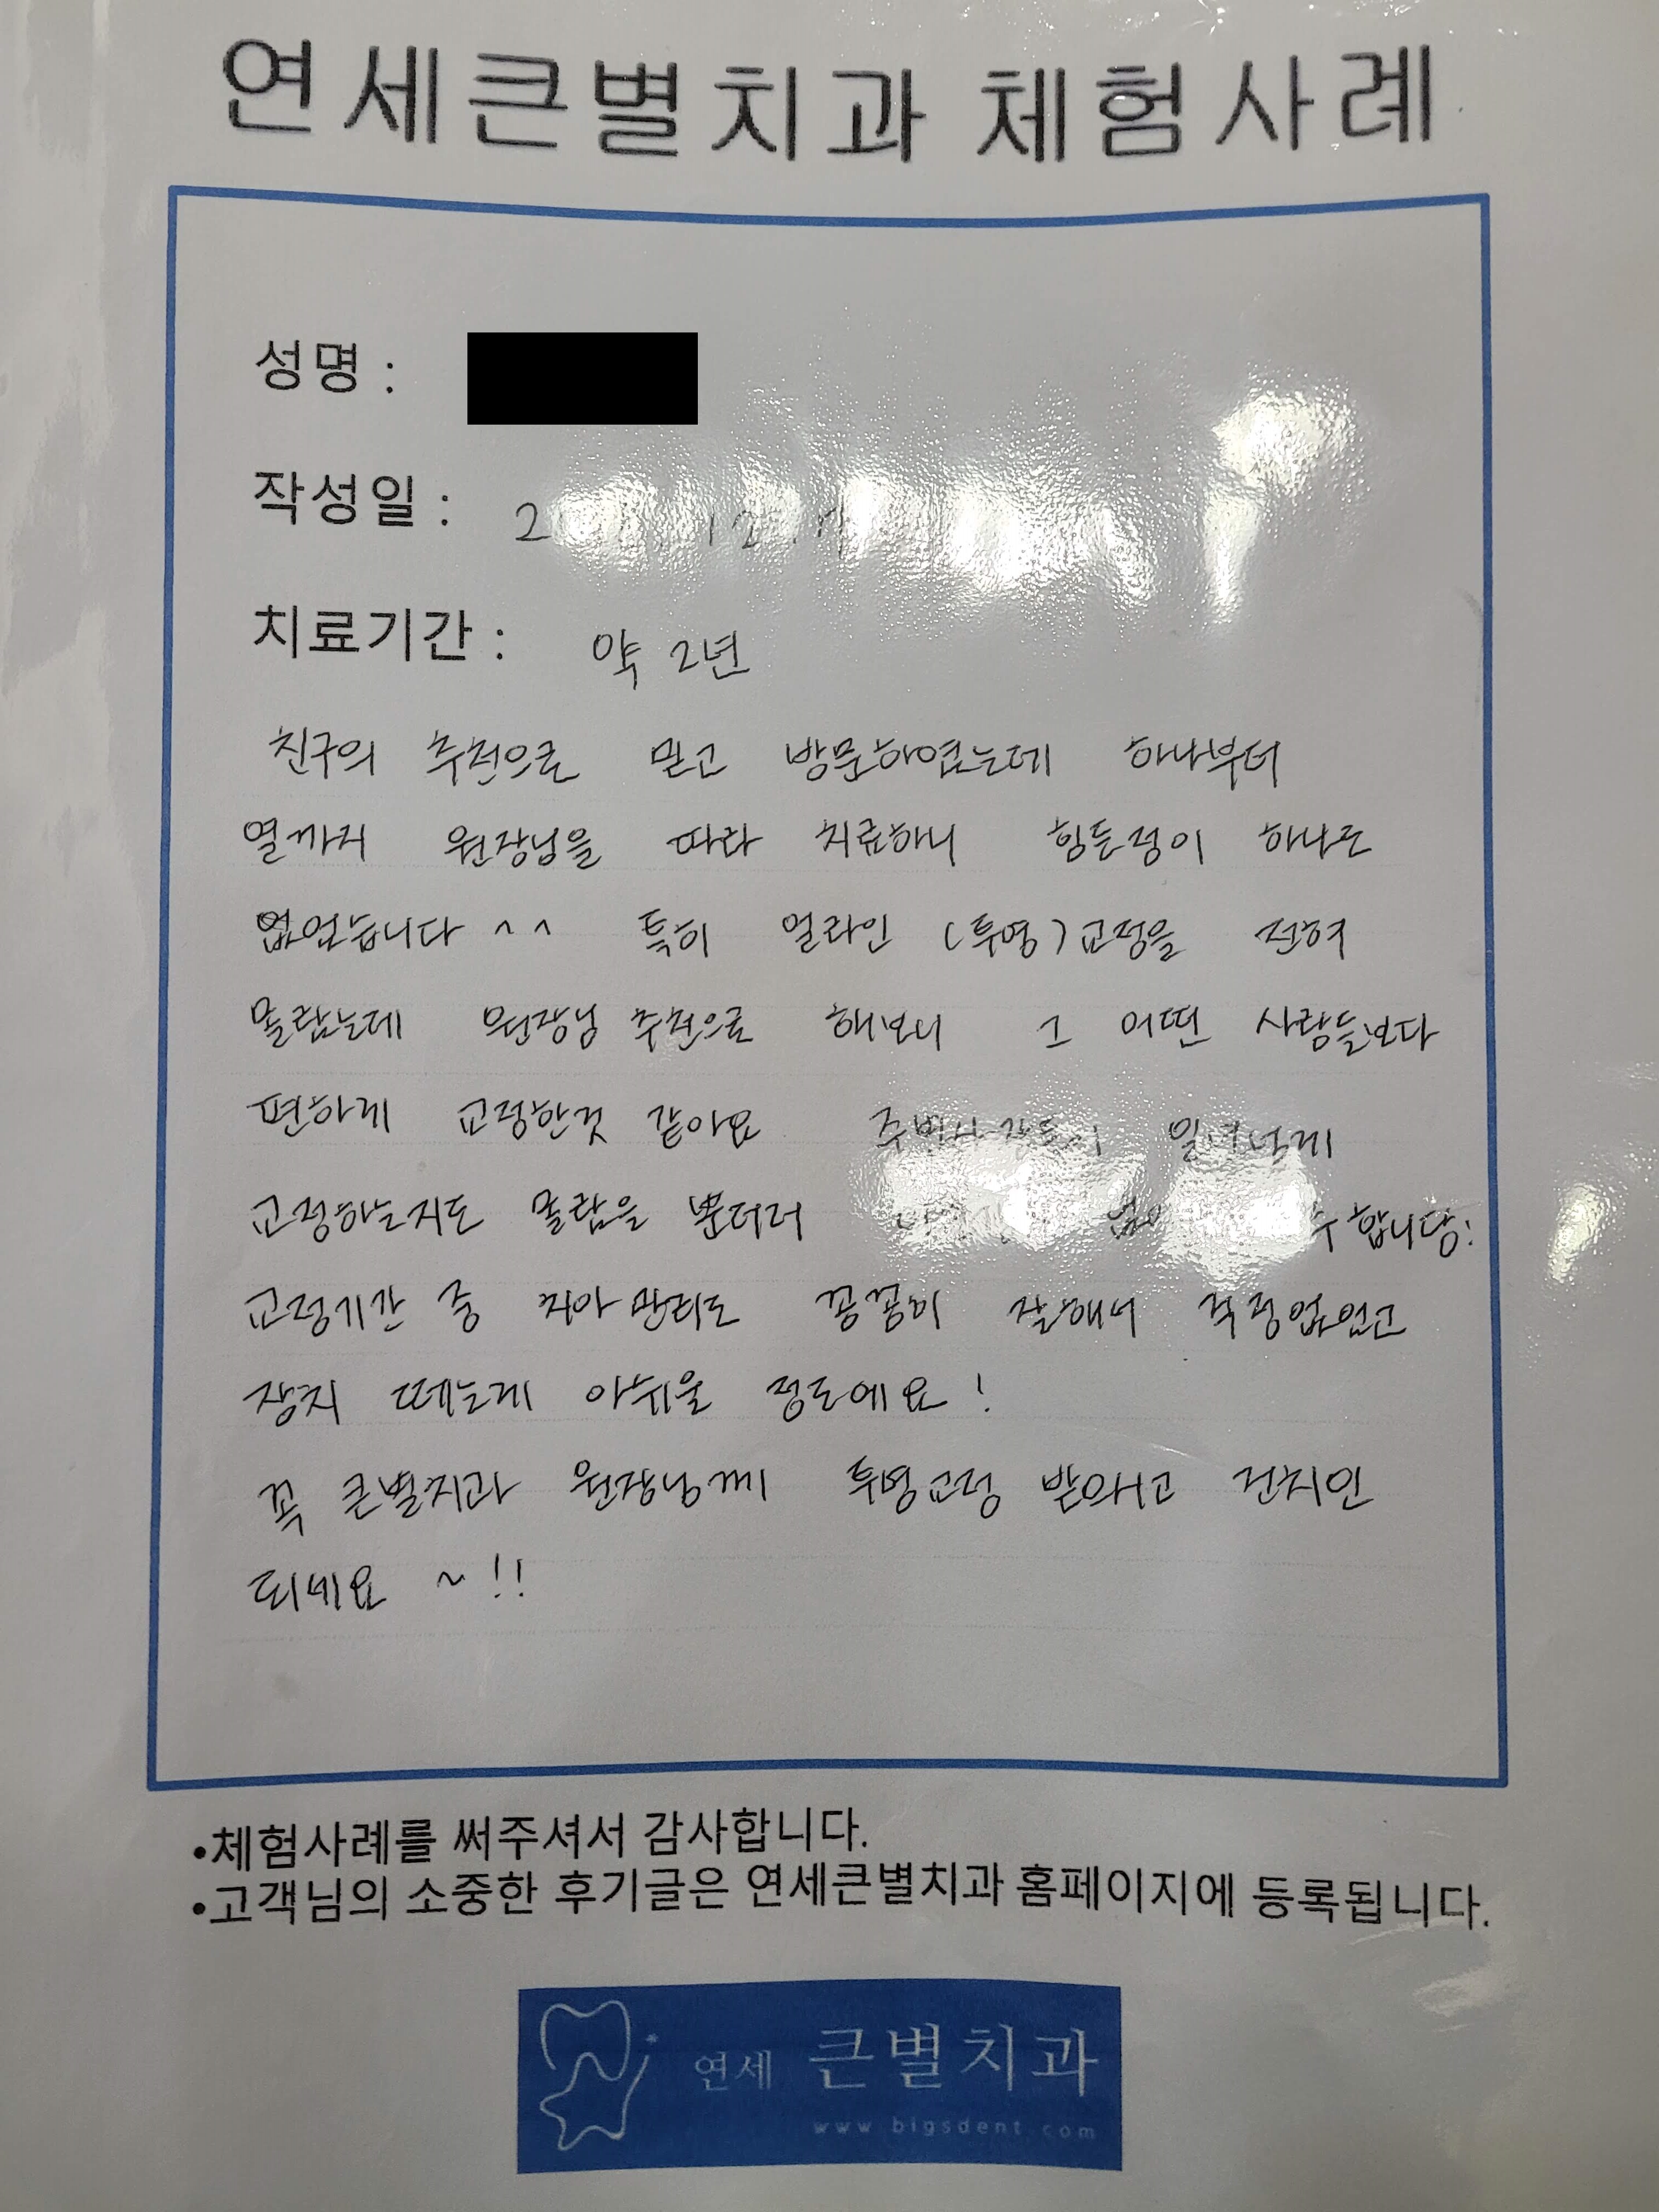 연세큰별치과 체험사례
성명 :
작성일 :
치료기간 : 약 2년
친구의 추천으로 믿고 방문하였는데 하나부터
열까지 원장님을 따라 치료하니 힘든점이 하나도
없었습니다 ^^ 특히 얼라인 (투명) 교정을 전혀
몰랐는데 원장님 추천으로 해보니 그 어떤 사람들보다
편하게 교정한것 같아요 주변사람들이
교정하는지도 몰랐을 뿐더러
교정기간 중 치아 관리도 꼼꼼히 잘해서 걱정없었고
장치 떼는게 아쉬울 정도에요!
꼭 큰별치과 원장님께 투명교정 받으시고 건치인
되세요 ~!!
•체험사례를 써주셔서 감사합니다.
•고객님의 소중한 후기글은 연세큰별치과 홈페이지에 등록됩니다.
연세 큰별치과
www.bigsdent.com